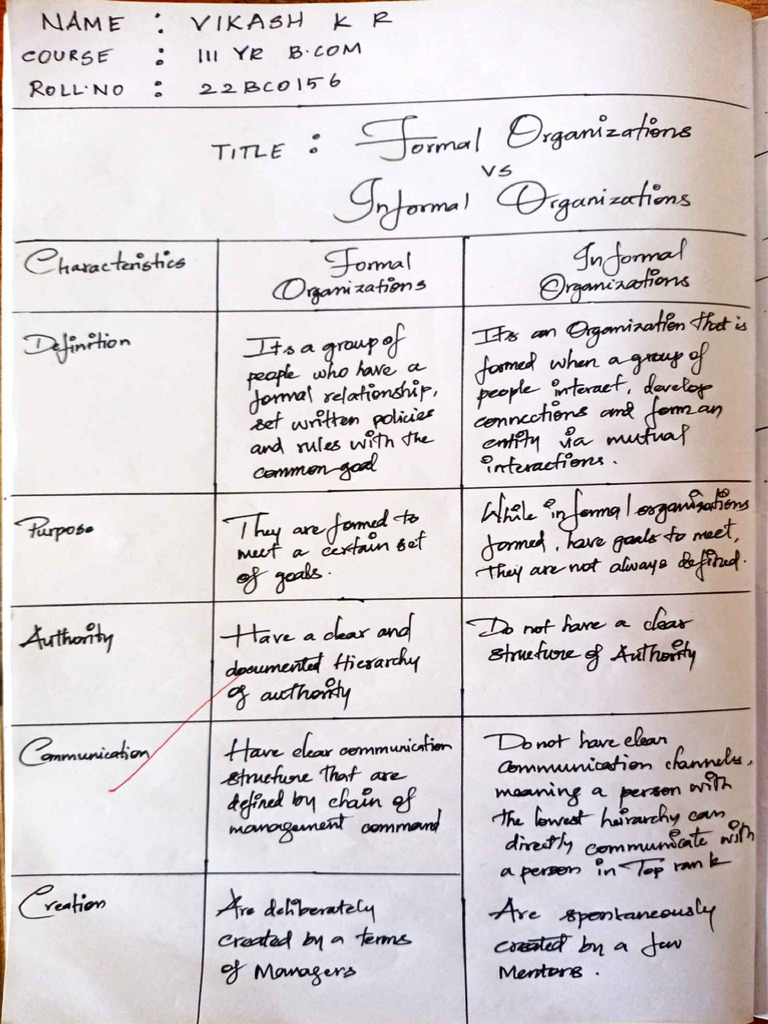 NAME : VIKASH K R
COURSE : III YR B.COM
ROLL.NO : 22BCO156
TITLE : Formal Organizations
vs
Informal Organizations
Characteristics
Formal
Organizations
Informal
Organizations
Definition
Its a group of
people who have a
formal relationship,
set written policies
and rules with the
common goal
Its an Organization that is
formed when a group of
people interact, develop
connections and form an
entity via mutual
interactions.
Purpose
They are formed to
meet a certain set
of goals.
While informal organizations
formed, have goals to meet,
they are not always defined.
Authority
Have a clear and
documented Hierarchy
of authority
Do not have a clear
structure of Authority
Communication
Have clear communication
structure that are
defined by chain of
management command
Do not have clear
communication channels,
meaning a person with
the lowest heirarchy can
directly communicate with
a person in Top rank
Creation
Are deliberately
created by a terms
of Managers
Are spontaneously
created by a few
Mentors.